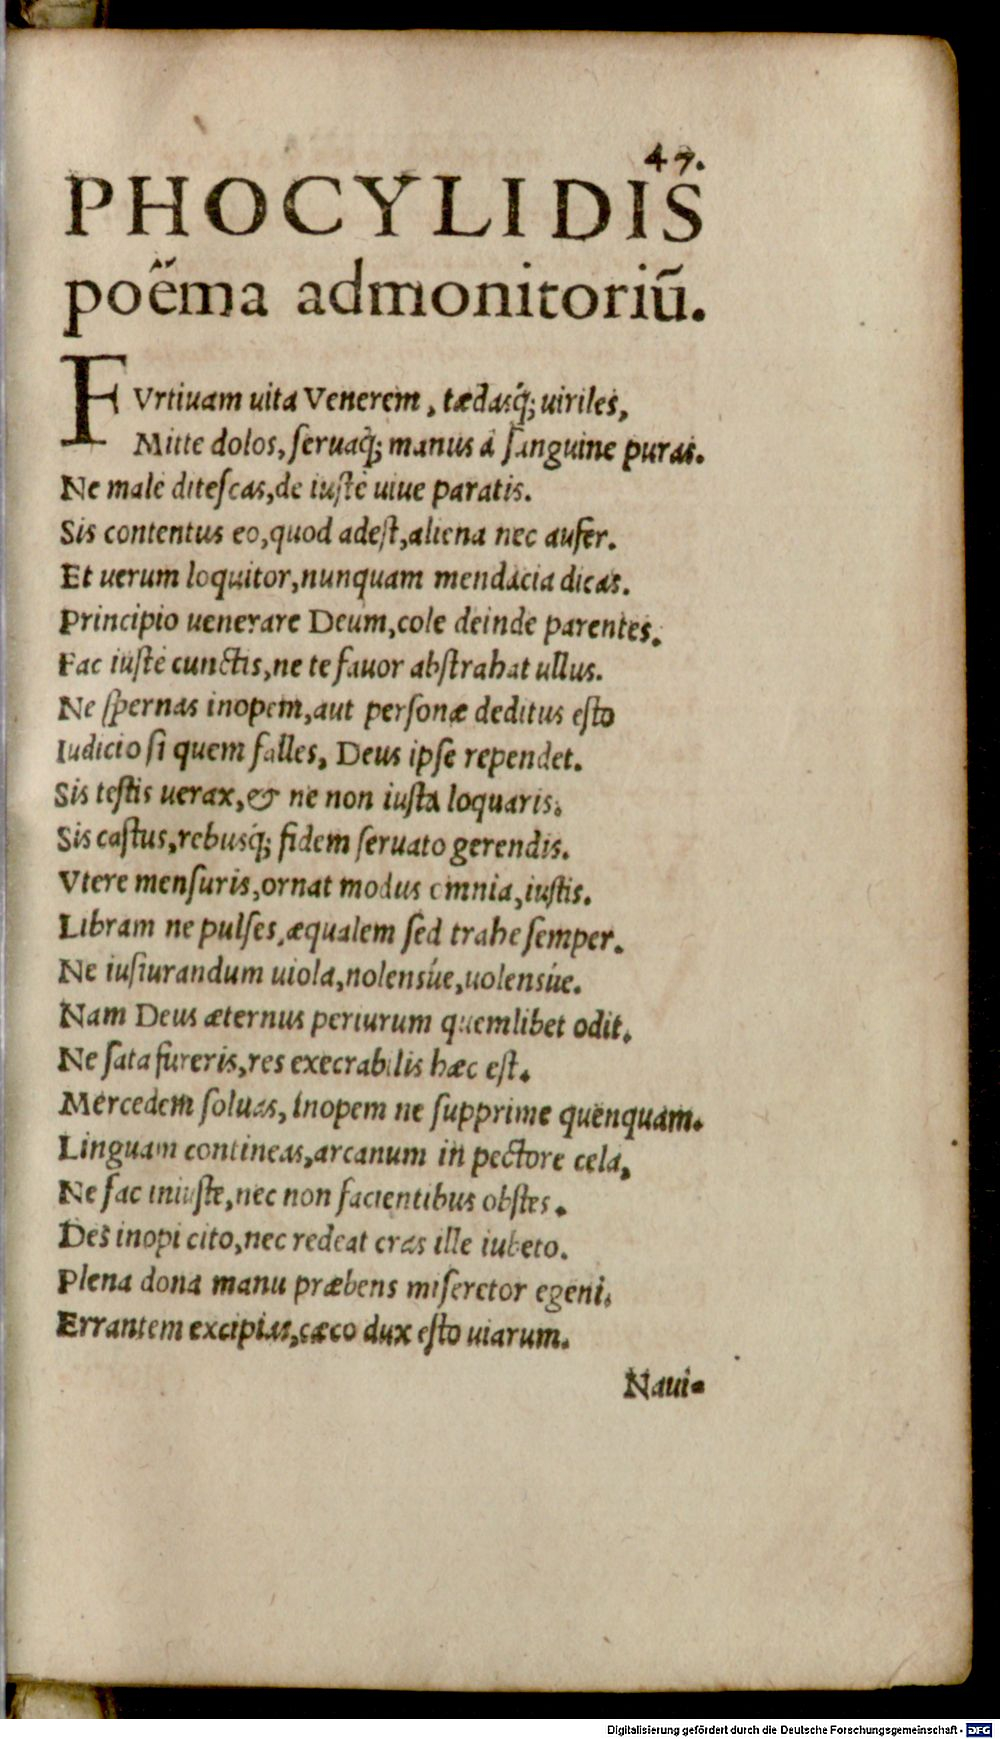 47.
PHOCYLIDIS
poëma admonitoriũ.
FVrtiuam uita Venerem, tædasq́; uiriles,
Mitte dolos, ſeruaq́; manus à ſanguine puras.
Ne malè diteſcas, de iuſtè uiue paratis.
Sis contentus eo, quod adeſt, aliena nec aufer.
Et uerum loquitor, nunquam mendacia dicas.
Principio uenerare Deum, cole deinde parentes.
Fac iuſtè cunctis, ne te fauor abſtrahat ullus.
Ne ſpernas inopem, aut perſonæ deditus eſto
Iudicio ſi quem falles, Deus ipſe rependet.
Sis teſtis uerax, & ne non iuſta loquaris.
Sis caſtus, rebusq́; fidem ſeruato gerendis.
Vtere menſuris, ornat modus omnia, iuſtis.
Libram ne pulſes, æqualem ſed trahe ſemper.
Ne iuſiurandum uiola, nolensúe, uolensúe.
Nam Deus æternus periurum quemlibet odit.
Ne ſata fureris, res execrabilis hæc eſt.
Mercedem ſoluas, inopem ne ſupprime quenquam.
Linguam contineas, arcanum in pectore cela,
Ne fac iniuſte, nec non facientibus obſtes.
Des inopi cito, nec redeat cras ille iubeto.
Plena dona manu præbens miſeretor egeni.
Errantem excipias, cæco dux eſto uiarum.
Naui-
Digitalisierung gefördert durch die Deutsche Forschungsgemeinschaft - DFG